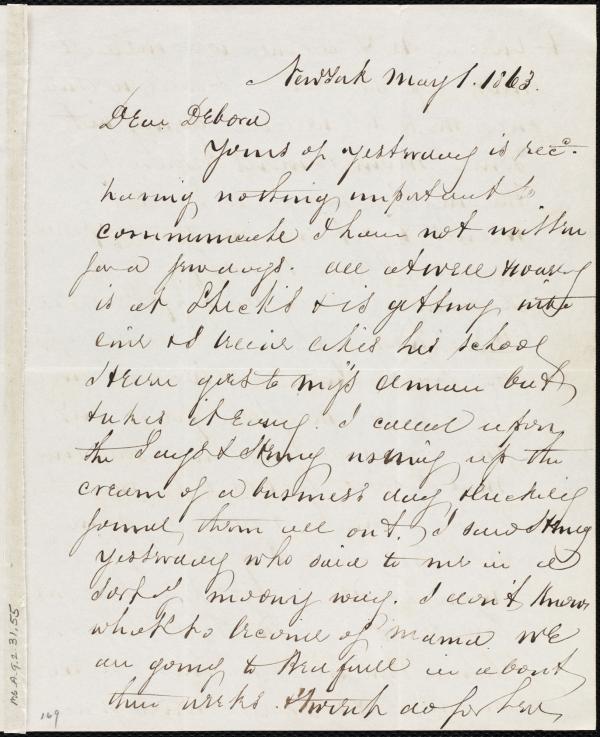 New York May 1. 1863.
Dear Debora
Yours of yesterday is recd.
having nothing important to
communicate I have not written
for a few days. All at well
is at & is getting into
line & I believe likes his school
goes to a man but
takes it easy. I called upon
the Jays & Henry using up the
cream of a business day & luckily
found them all out. I saw Henry
yesterday who said to me in a
sort of moony way. I don't know
what's to become of mama we
are going to in about
three weeks. & twont do for her
149
MS.A.9.2.31.55